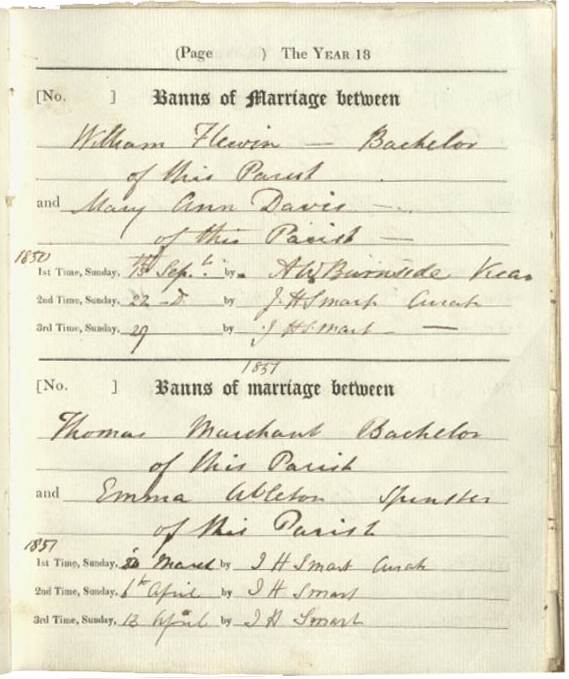 (Page ) The YEAR 18
[No. ] Banns of Marriage between
William Flewin — Bachelor
of this Parish
and Mary Ann Davis —
of this Parish —
1850
1st Time, Sunday, 15 Sep. by A W Burnside Vicar
2nd Time, Sunday, 22 - D. by J. H Smart Curate
3rd Time, Sunday, 29 by J H Smart —
1851
[No. ] Banns of marriage between
Thomas Marchant Bachelor
of this Parish
and Emma Ableton Spinster
of this Parish
1851
1st Time, Sunday, 30 March by J H Smart Curate
2nd Time, Sunday, 6th April by J H Smart
3rd Time, Sunday, 13 April by J H Smart